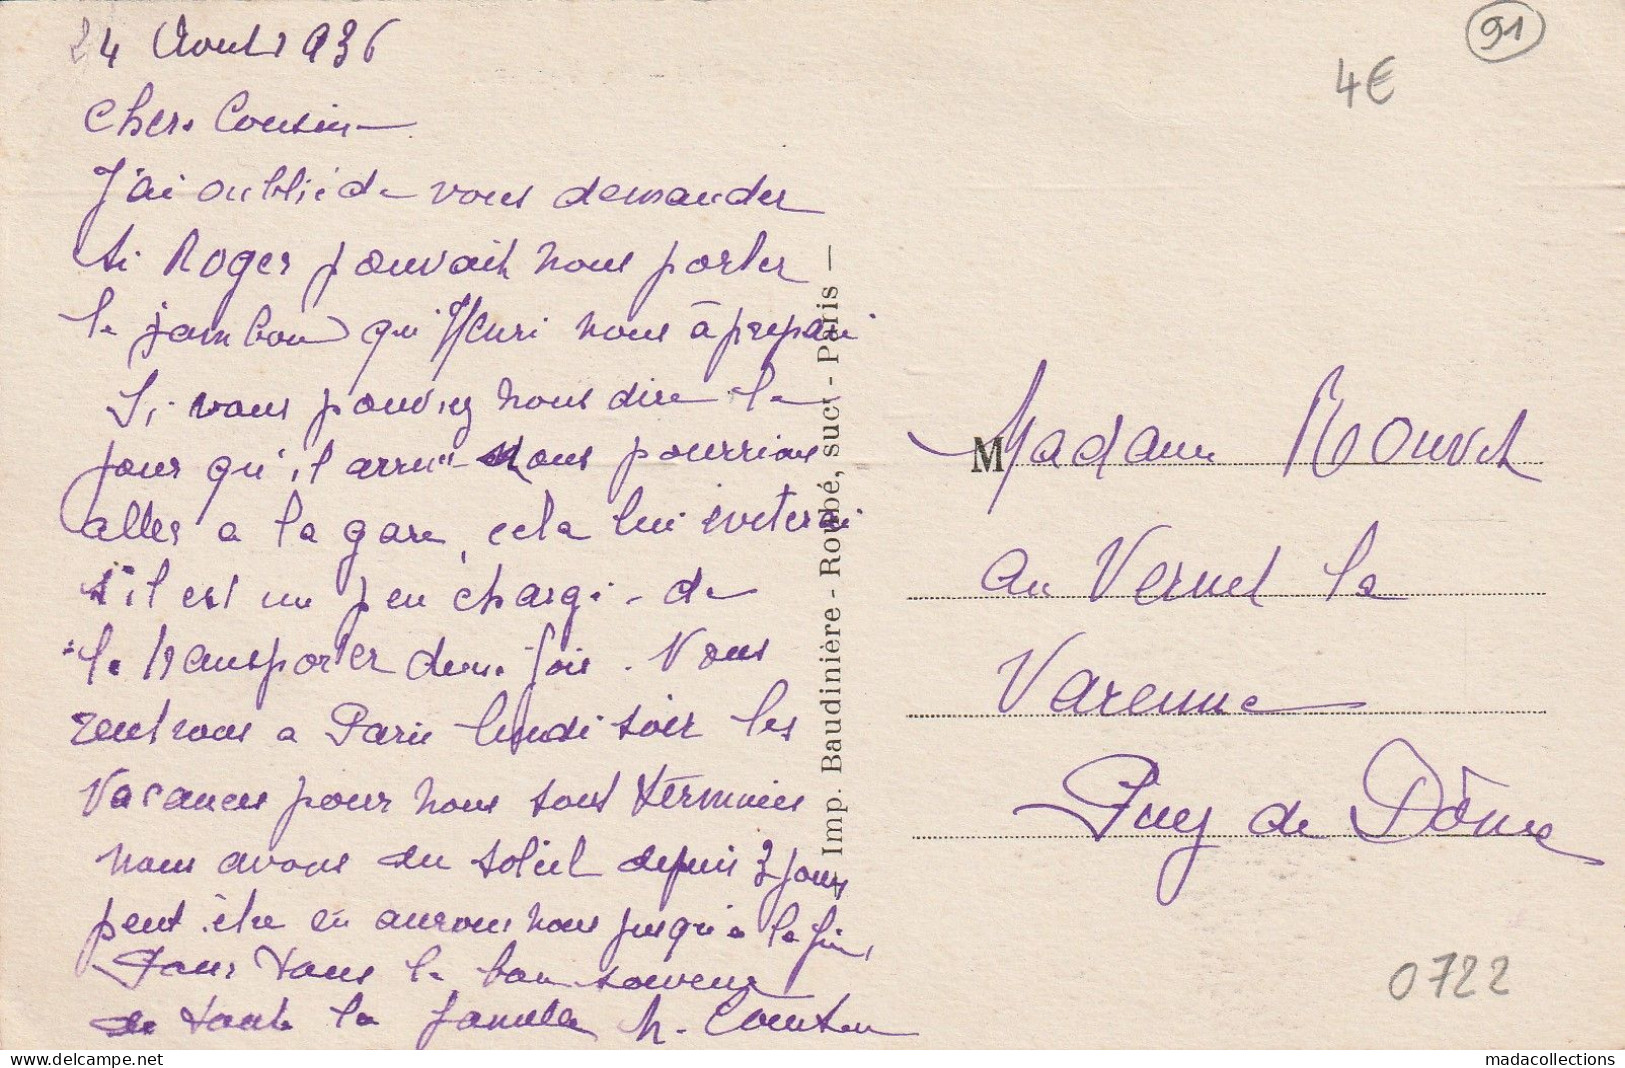 24 Aout 1936
Chers Cousin
J'ai oublié de vous demander
si Roger pouvait nous porter
le jambon qu'Henri nous à prepari
Si vous pouviez nous dire le
jour qu'il arrive nous pourrions
aller a la gare, cela lui eviterai
s'il est un peu chargé de
le transporter deux fois. Nous
rentrons a Paris lundi soir les
vacances pour nous sont terminées
nous avons du soleil depuis 3 jours
peut être en aurons nous jusqu'a la fin,
Pour tous le bon souvenir
de toute la famille
Imp. Baudinière - Roubé, suc. - Paris —
91
4€
Madame Rouvet
au Vernet la
Varenne
Puy de Dôme
0722
madacollections